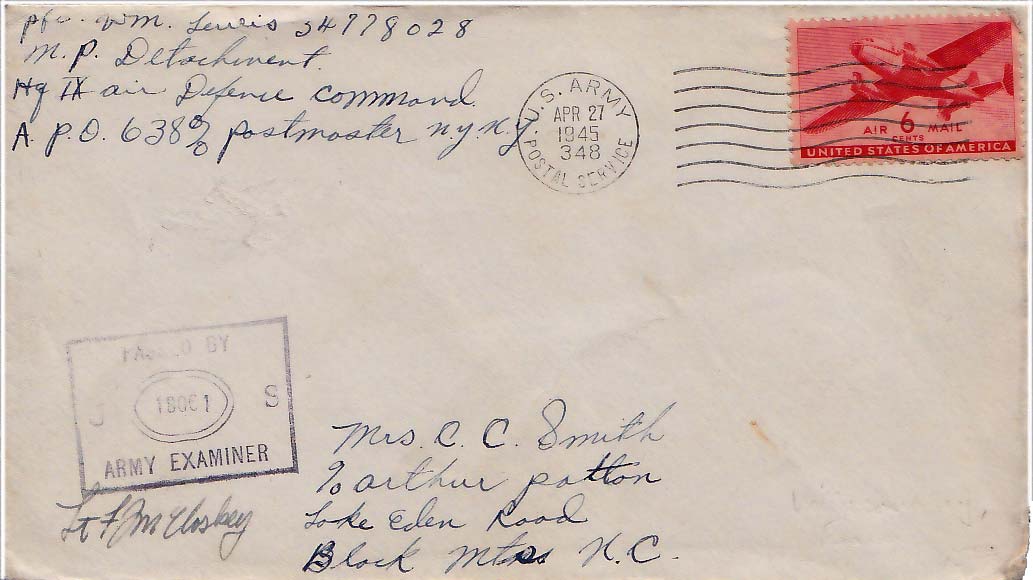 Pfc. Wm. Lewis 34778028
M.P. Detachment.
Hq IX air Defense command.
A.P.O. 638 c/o postmaster N.Y. N.Y.
U.S. ARMY
APR 27
1945
348
POSTAL SERVICE
AIR 6 MAIL
CENTS
UNITED STATES OF AMERICA
PASSED BY
J S
ARMY EXAMINER
Lt F J McCloskey
Mrs. C. C. Smith
c/o arthur patton
Lake Eden Road
Black Mtns N.C.